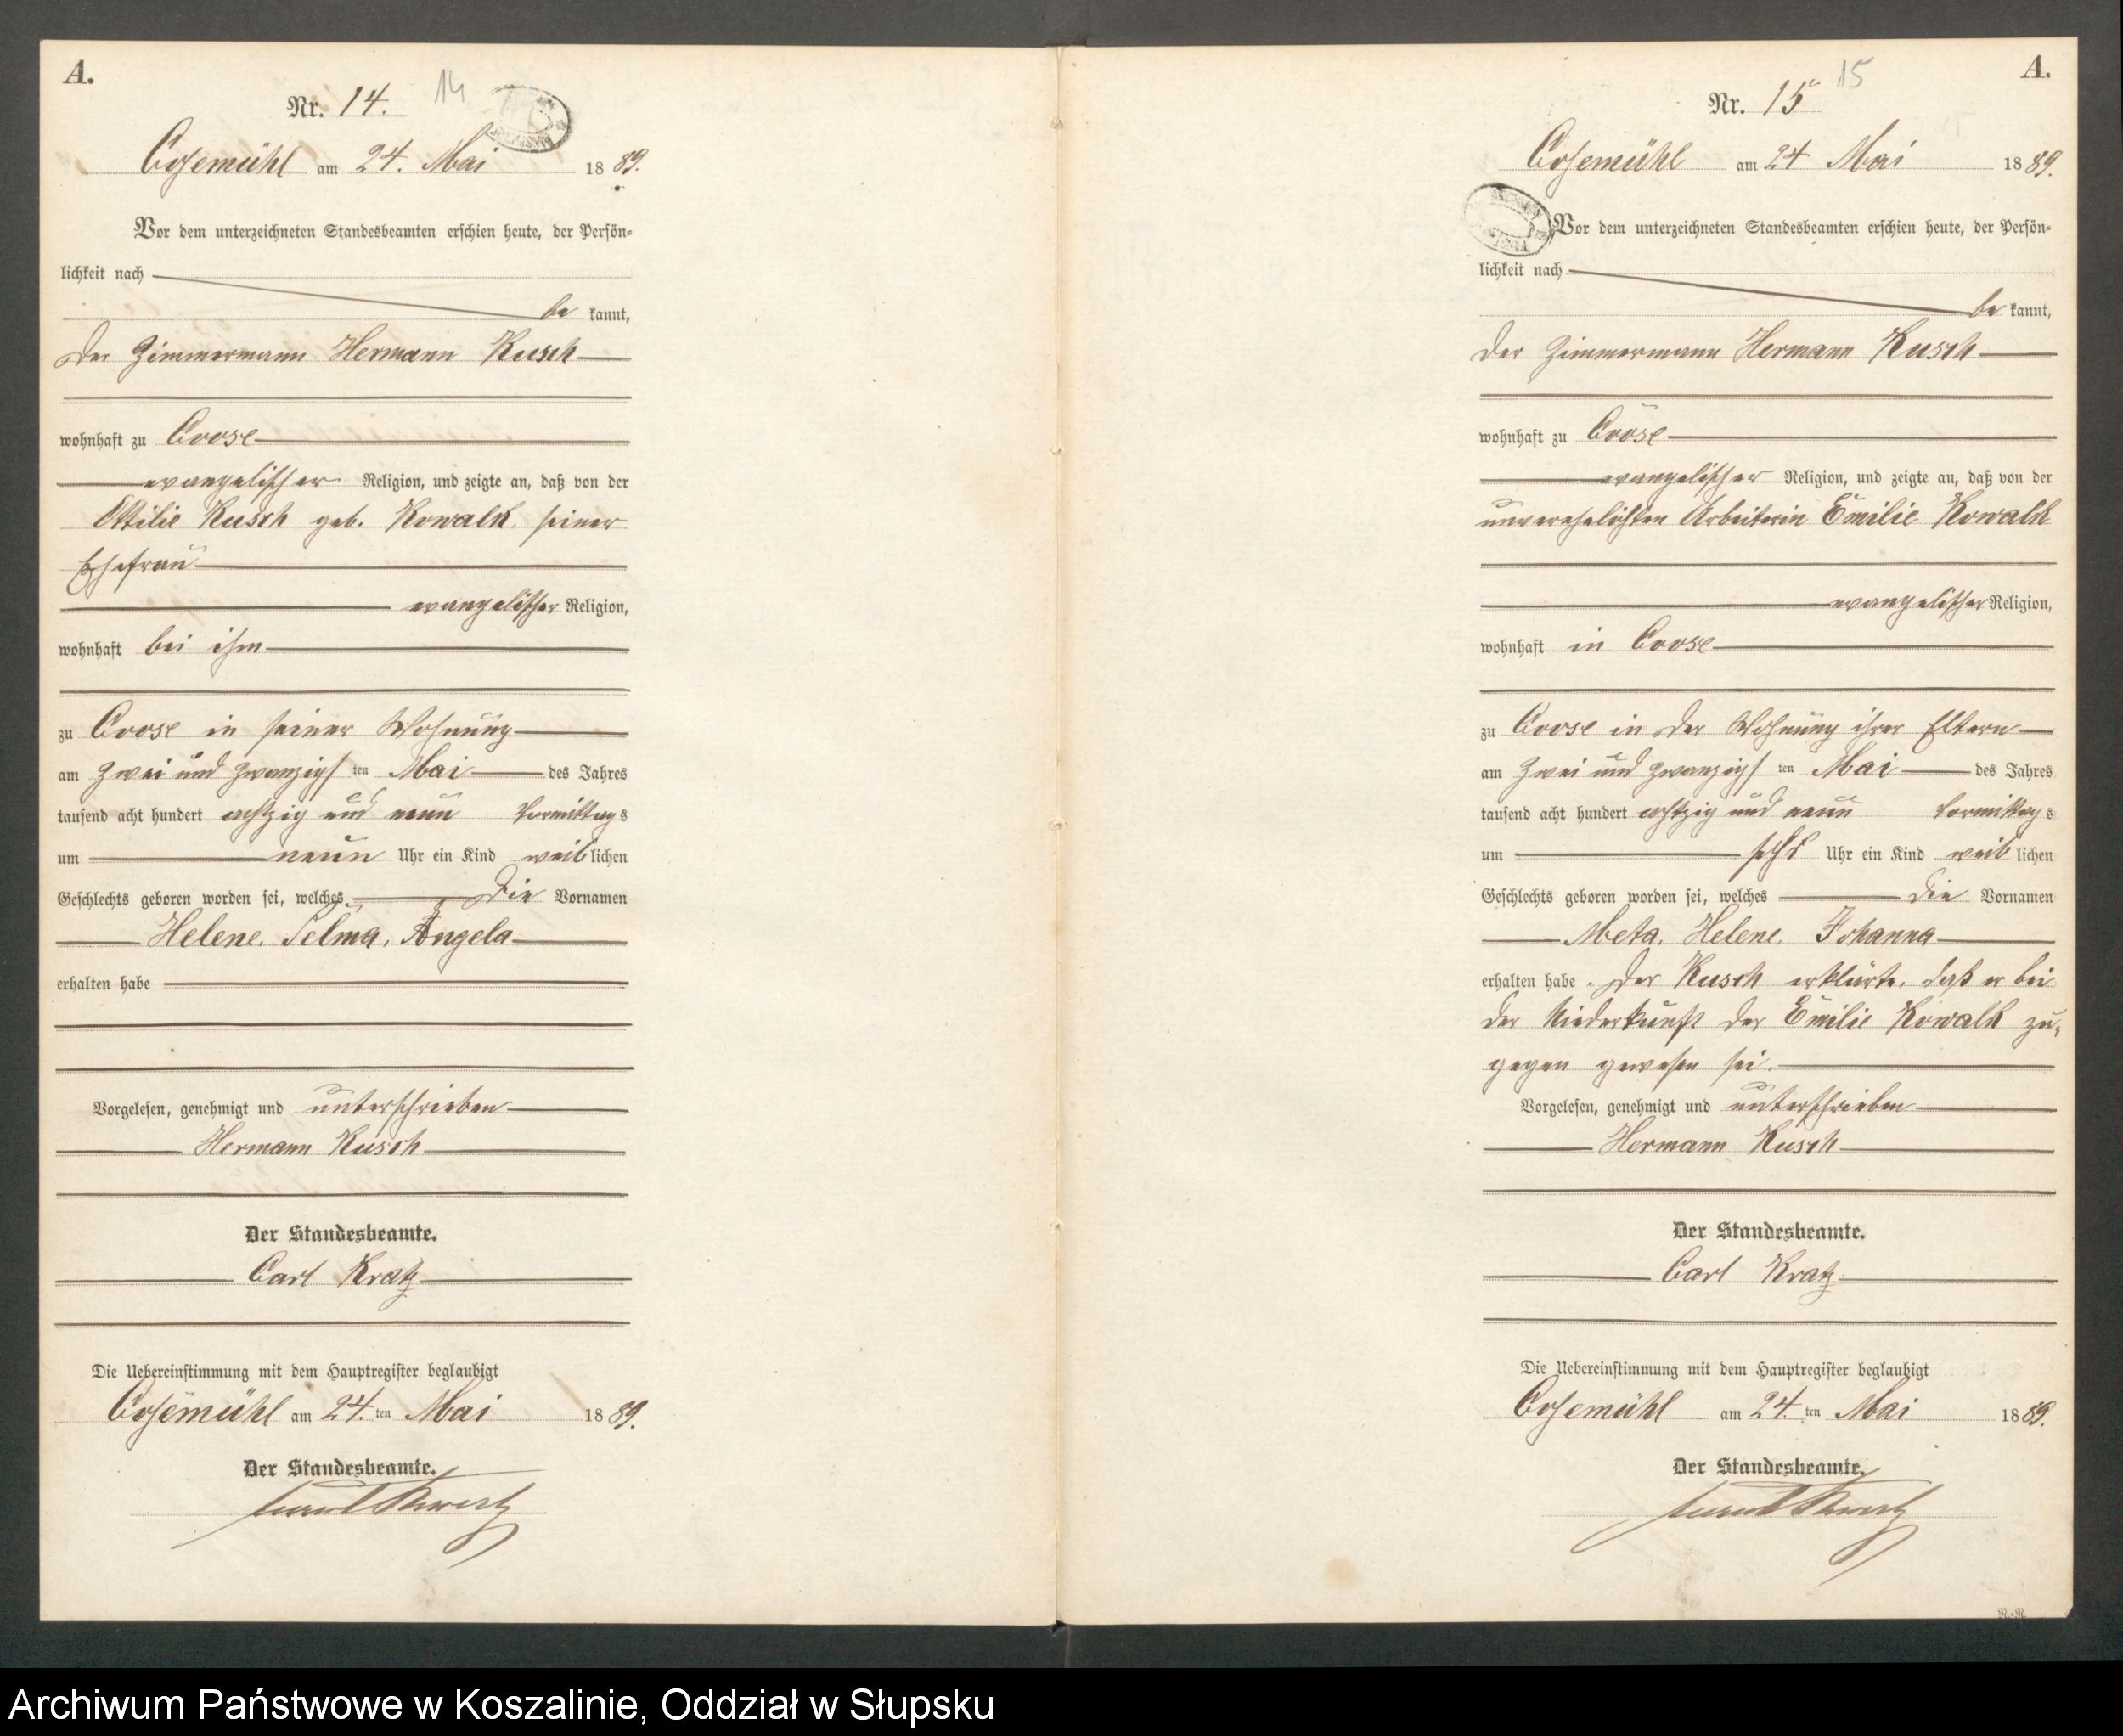 A.
Nr. 14. 14
Cosemühl am 24. Mai 1889.
Vor dem unterzeichneten Standesbeamten erschien heute, der Persön=
lichkeit nach
be kannt,
der Zimmermann Hermann Kusch
wohnhaft zu Coose
evangelischer Religion, und zeigte an, daß von der
Ottilie Kusch geb. Kowalk, seiner
Ehefrau
evangelischer Religion,
wohnhaft bei ihm
zu Coose in seiner Wohnung
am zwei und zwanzigsten Mai des Jahres
tausend acht hundert achtzig und neun Vormittags
um neun Uhr ein Kind weiblichen
Geschlechts geboren worden sei, welches die Vornamen
Helene, Selma, Angela
erhalten habe
Vorgelesen, genehmigt und unterschrieben
Hermann Kusch
Der Standesbeamte.
Carl Kratz
Die Uebereinstimmung mit dem Hauptregister beglaubigt
Cosemühl am 24. ten Mai 1889.
Der Standesbeamte.
A.
Nr. 15 15
Cosemühl am 24 Mai 1889.
Vor dem unterzeichneten Standesbeamten erschien heute, der Persön=
lichkeit nach
be kannt,
der Zimmermann Hermann Kusch
wohnhaft zu Coose
evangelischer Religion, und zeigte an, daß von der
unverehelichten Arbeiterin Emilie Kowalk
evangelischer Religion,
wohnhaft in Coose
zu Coose in der Wohnung ihrer Eltern
am zwei und zwanzigsten Mai des Jahres
tausend acht hundert achtzig und neun Vormittags
um sechs Uhr ein Kind weiblichen
Geschlechts geboren worden sei, welches die Vornamen
Meta, Helene, Johanna
erhalten habe. Der Kusch erklärte, daß er bei
der Niederkunft der Emilie Kowalk zu=
gegen gewesen sei.
Vorgelesen, genehmigt und unterschrieben
Hermann Kusch
Der Standesbeamte.
Carl Kratz
Die Uebereinstimmung mit dem Hauptregister beglaubigt
Cosemühl am 24. ten Mai 1889.
Der Standesbeamte.
Archiwum Państwowe w Koszalinie, Oddział w Słupsku